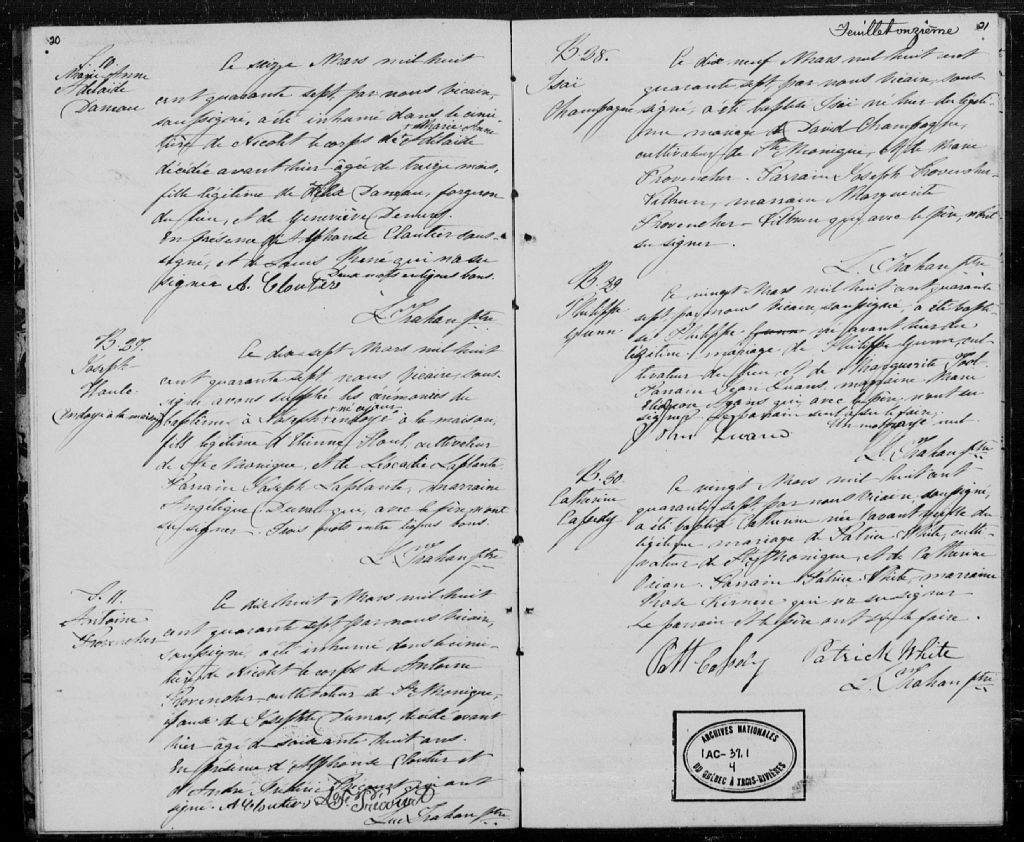 20
S. 10.
Marie Anne
Adelaide
Daneau
Ce seize Mars mil huit
cent quarante sept, par nous vicaire,
soussigné, a été inhumé dans le cimi-
tière de Nicolet le corps de Marie Anne Adelaide
décédée avant hier âgée de treize mois,
fille légitime de Daneau, forgeron
du lieu, et de Geneviève Demers.
En présence de Alphonse Cloutier sous-
signé, et de Louis qui n'a su
signer. Deux mots en lignes bons.
A. Cloutier
L. Trahan ptre
B. 27.
Joseph
Houle
(ondoyé à la maison)
Ce dix sept Mars mil huit
cent quarante sept, nous vicaire, sous-
signé avons suppléé les cérémonies du
baptême à Joseph ondoyé à la maison,
fils légitime d'Etienne Houl, cultivateur
de Ste Monique, et de Léocadie Laplante.
Parrain Joseph Laplante, marraine
Angélique qui, avec le père, n'ont
su signer. Trois mots entre lignes bons.
L. Trahan ptre
S. 11.
Antoine
Provencher
Ce dix huit Mars mil huit
cent quarante sept par nous vicaire,
soussigné, a été inhumé dans le cimi-
tière de Nicolet le corps de Antoine
Provencher cultivateur de Ste Monique,
époux de Josephte Dumas, décédé avant
hier âgé de soixante huit ans.
En présence de Alphonse Cloutier et
d'André Antoine qui ont
signé. A Cloutier
Luc Trahan ptre
Feuillet onzième
21
B. 28.
Isaï
Champagne
Ce dix neuf Mars mil huit cent
quarante sept par nous vicaire, sous-
signé, a été baptisé Isaï né hier du légiti-
me mariage de David Champagne,
cultivateur de Ste Monique, et de Marie
Provencher. Parrain Joseph Provencher-
Vilbrun, marraine Marguerite
Provencher-Vilbrun qui, avec le père, n'ont
su signer.
L. Trahan ptre
B. 29.
Philippe
Gunn.
Ce vingt Mars mil huit cent quarante
sept par nous vicaire, soussigné, a été bapti-
sé Philippe né avant hier du
légitime mariage de Philippe Gunn, cul-
tivateur du lieu et de Marguerite
Parrain Jean Evans, marraine Marie
qui, avec le père, n'ont su
signer. Le parrain seul a su le faire.
Un mot rayé nul.
John
L. Trahan ptre
B. 30.
Catherine
Cassedy
Ce vingt Mars mil huit cent
quarante sept par nous vicaire, soussigné,
a été baptisé Catherine née l'avant veille du
légitime mariage de Patrice White, culti-
vateur de Ste Monique, et de Catherine
Parrain Patrice White, marraine
Rose qui n'a su signer
Le parrain et le père ont su le faire.
Patt Cassedy Patrick White
L. Trahan ptre
ARCHIVES NATIONALES
1AC-37.1
4
DU QUÉBEC À TROIS-RIVIÈRES